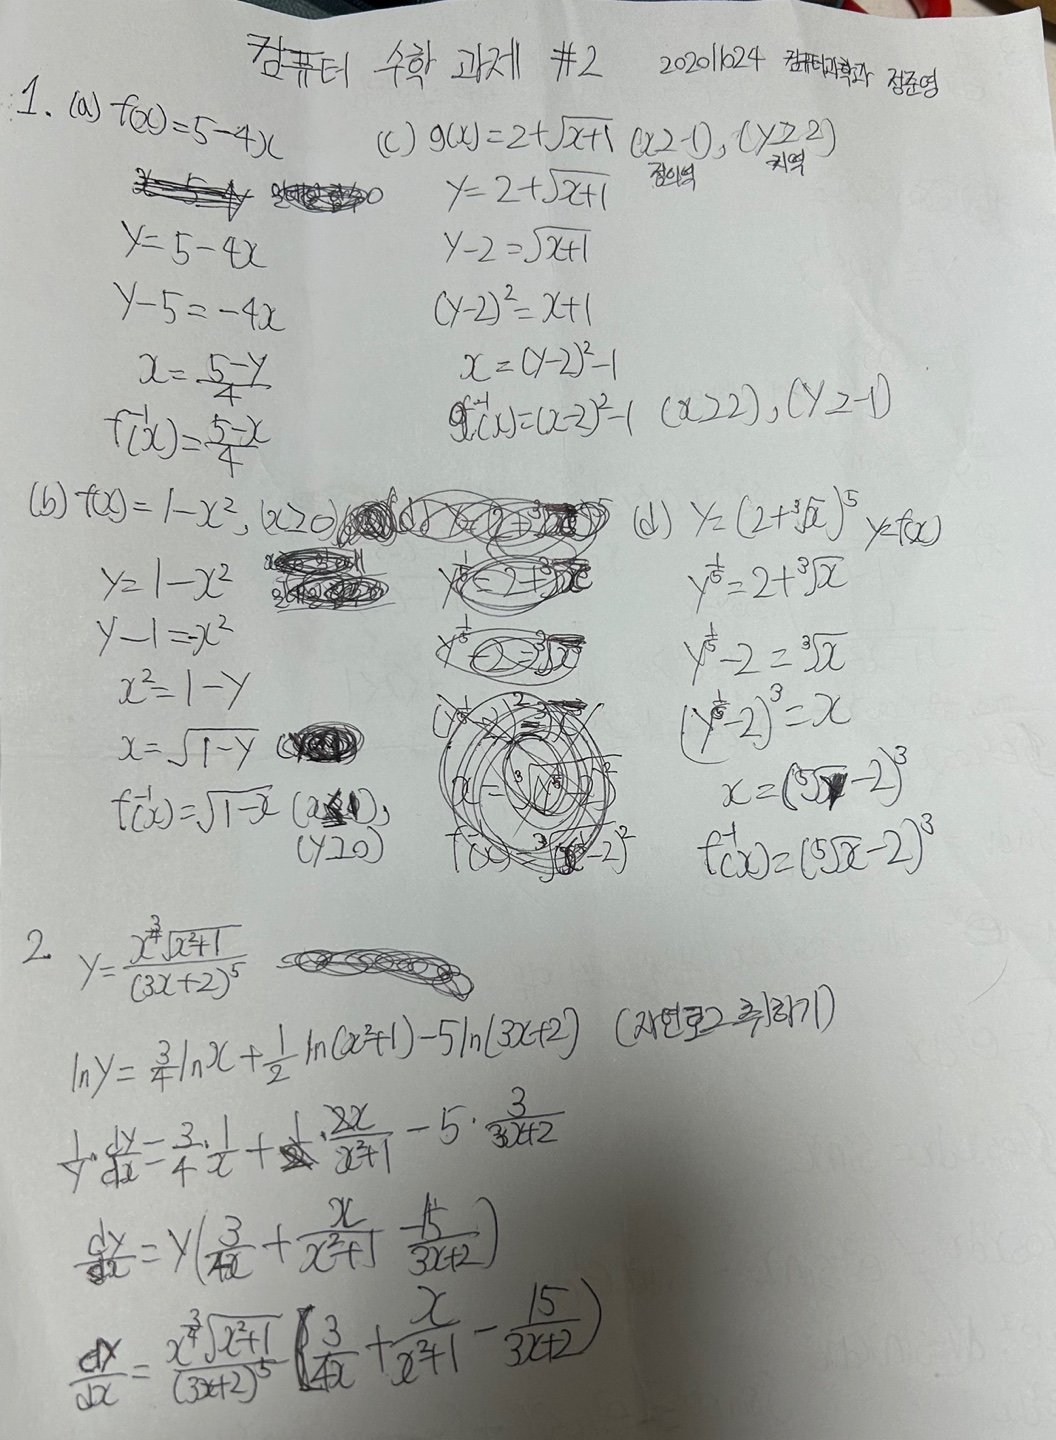 컴퓨터 수학 과제 #2 202011024 컴퓨터과학과 정준영
1. (a) f(x)=5-4x
y=5-4x
y-5=-4x
x=\frac{5-y}{4}
f^{-1}(x)=\frac{5-x}{4}
(c) g(x)=2+\sqrt{x+1} (x≥-1), (y≥2)
정의역 치역
y=2+\sqrt{x+1}
y-2=\sqrt{x+1}
(y-2)^2=x+1
x=(y-2)^2-1
g^{-1}(x)=(x-2)^2-1 (x≥2), (y≥-1)
(b) f(x)=1-x^2, (x≥0)
y=1-x^2
y-1=-x^2
x^2=1-y
x=\sqrt{1-y}
f^{-1}(x)=\sqrt{1-x} (x≤1),
(y≥0)
(d) y=(2+\sqrt[3]{x})^5 y=f(x)
y^{\frac{1}{5}}=2+\sqrt[3]{x}
y^{\frac{1}{5}}-2=\sqrt[3]{x}
(y^{\frac{1}{5}}-2)^3=x
x=(\sqrt[5]{y}-2)^3
f^{-1}(x)=(\sqrt[5]{x}-2)^3
2. y=\frac{x^{\frac{3}{4}}\sqrt{x^2+1}}{(3x+2)^5}
ln y=\frac{3}{4}ln x+\frac{1}{2}ln(x^2+1)-5ln(3x+2) (자연로그 취하기)
\frac{1}{y}·\frac{dy}{dx}=\frac{3}{4}·\frac{1}{x}+\frac{1}{2}·\frac{2x}{x^2+1}-5·\frac{3}{3x+2}
\frac{dy}{dx}=y(\frac{3}{4x}+\frac{x}{x^2+1}-\frac{15}{3x+2})
\frac{dy}{dx}=\frac{x^{\frac{3}{4}}\sqrt{x^2+1}}{(3x+2)^5}(\frac{3}{4x}+\frac{x}{x^2+1}-\frac{15}{3x+2})